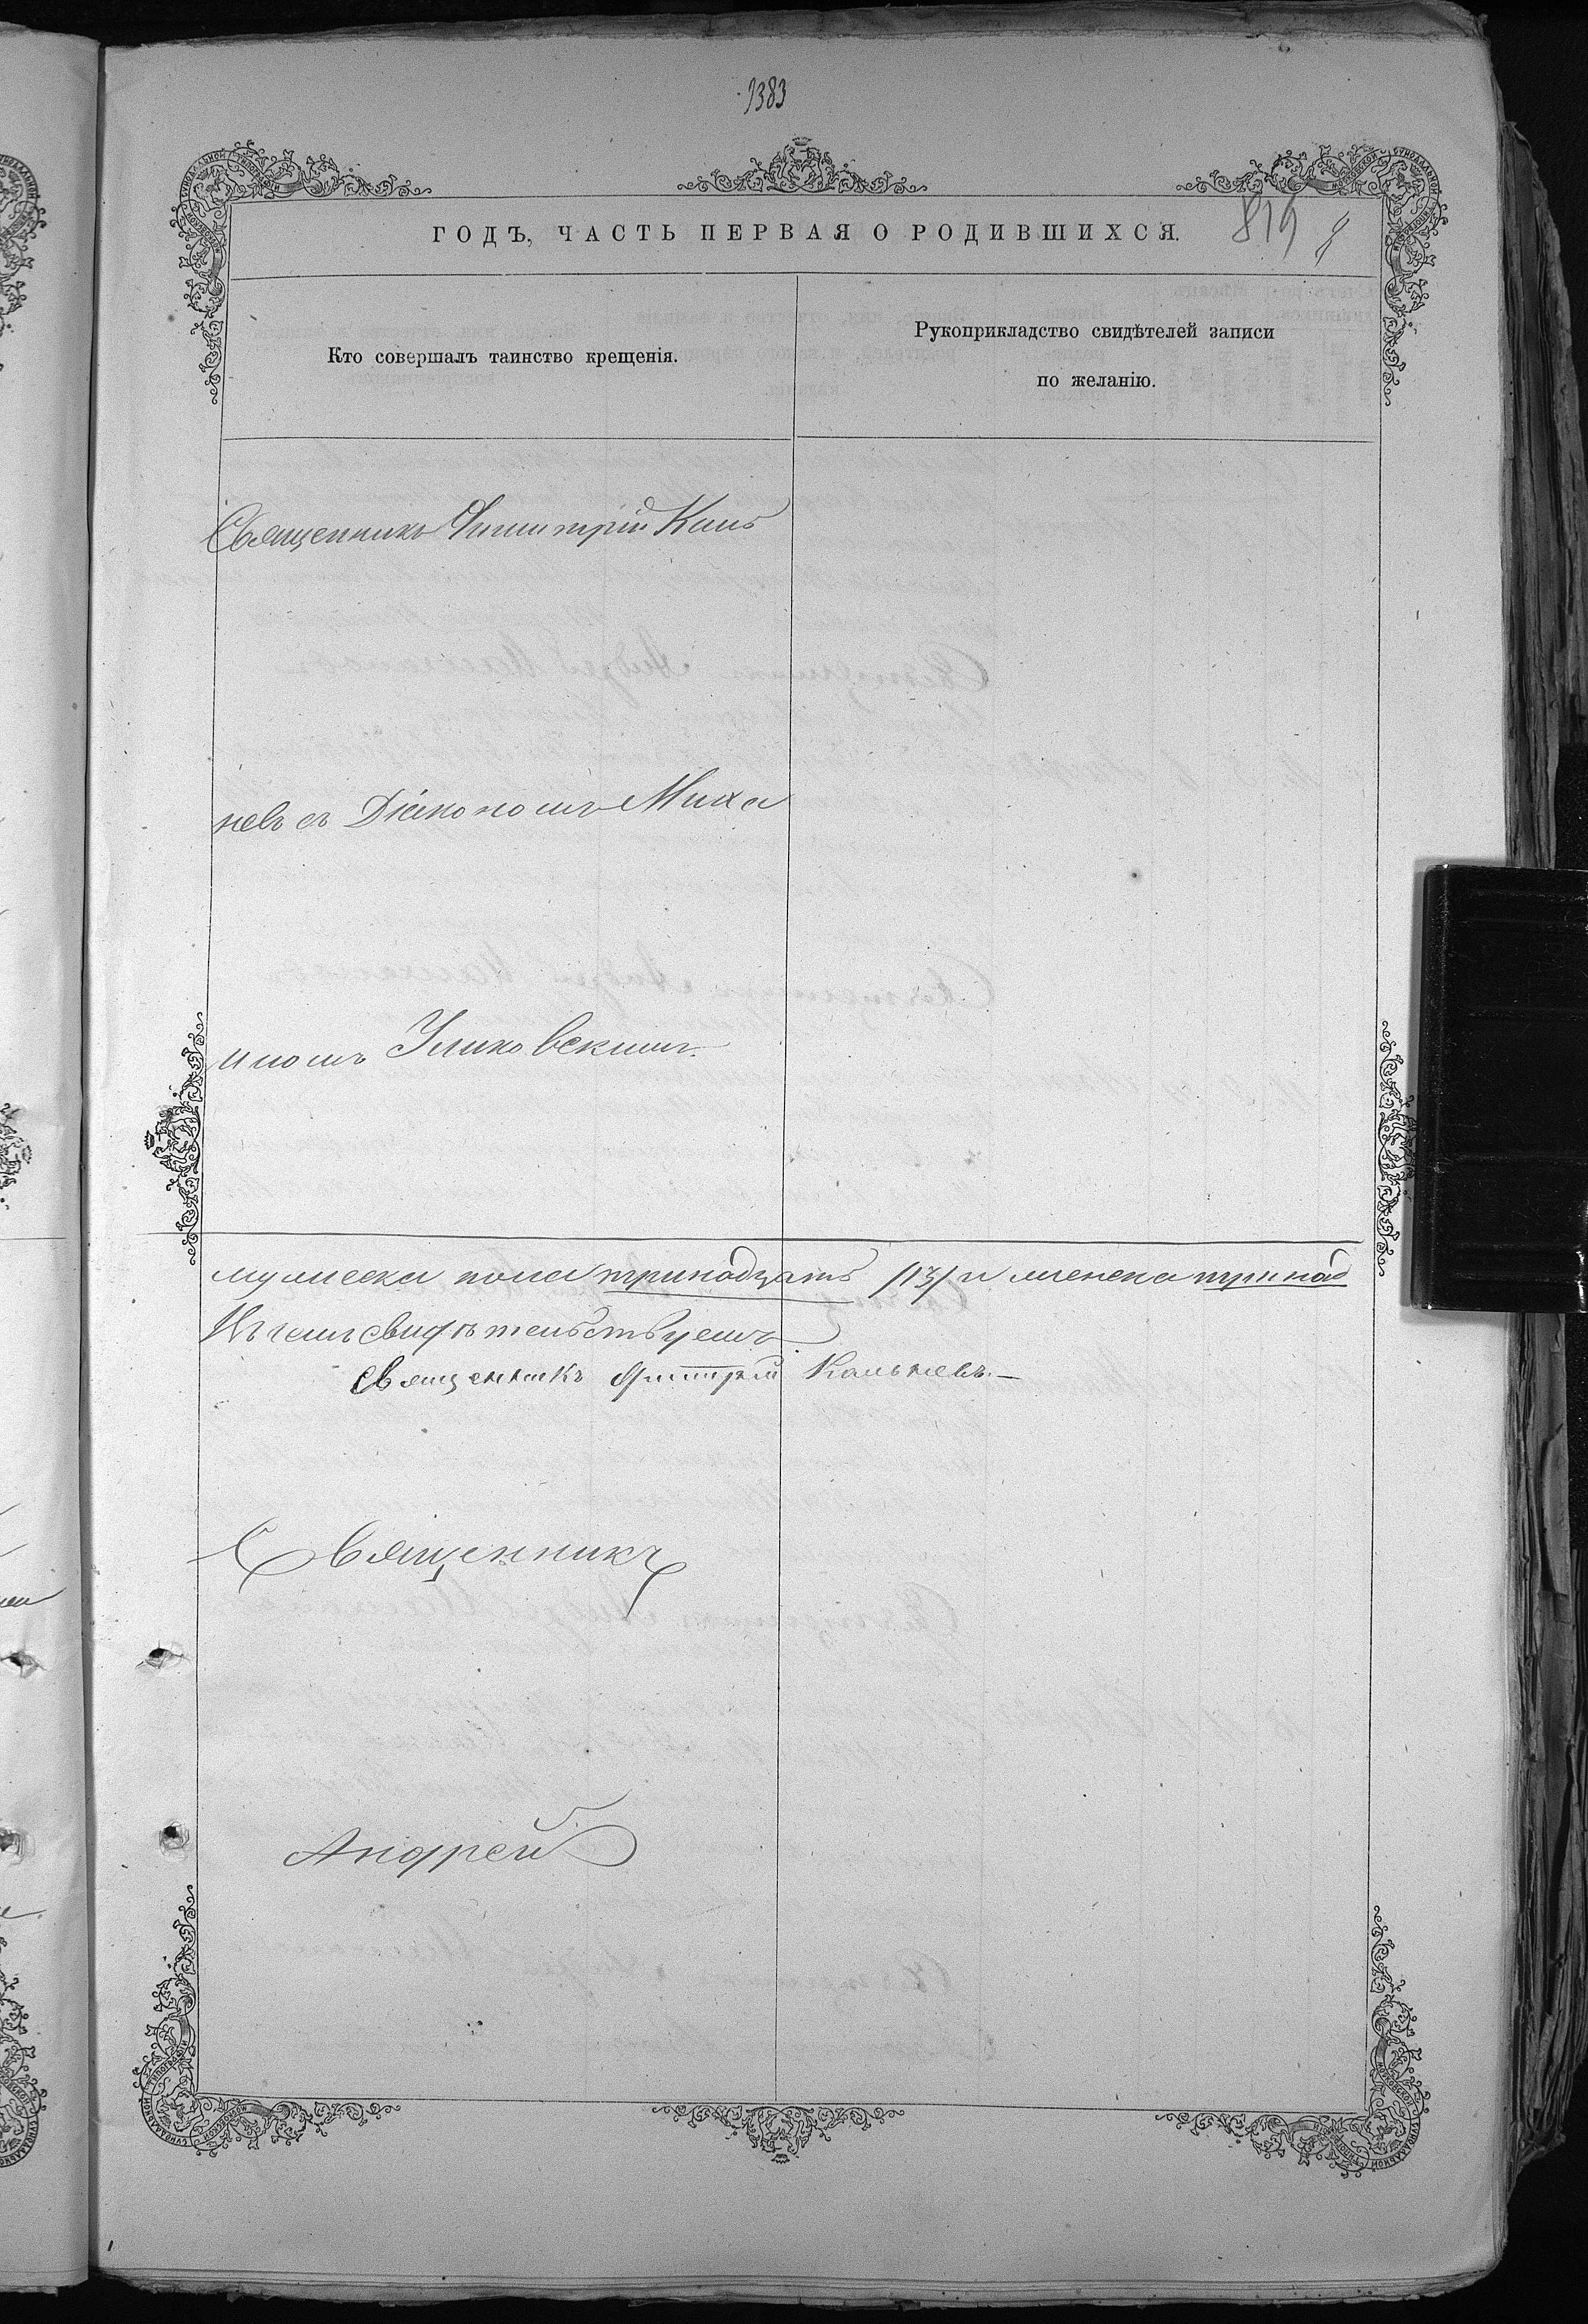 1383
819
ГОДЪ, ЧАСТЬ ПЕРВАЯ О РОДИВШИХСЯ.
Кто совершалъ таинство крещенія.
Рукоприкладство свидѣтелей записи
по желанію.
Священникъ Димитрій Каль
невъ съ Діакономъ Миха
иломъ
мужеска пола тринадцать /13/ и женска тринад
Въ чемъ свидѣтельствуемъ
Священникъ Димитрій Кальневъ.
Священникъ
Андрей